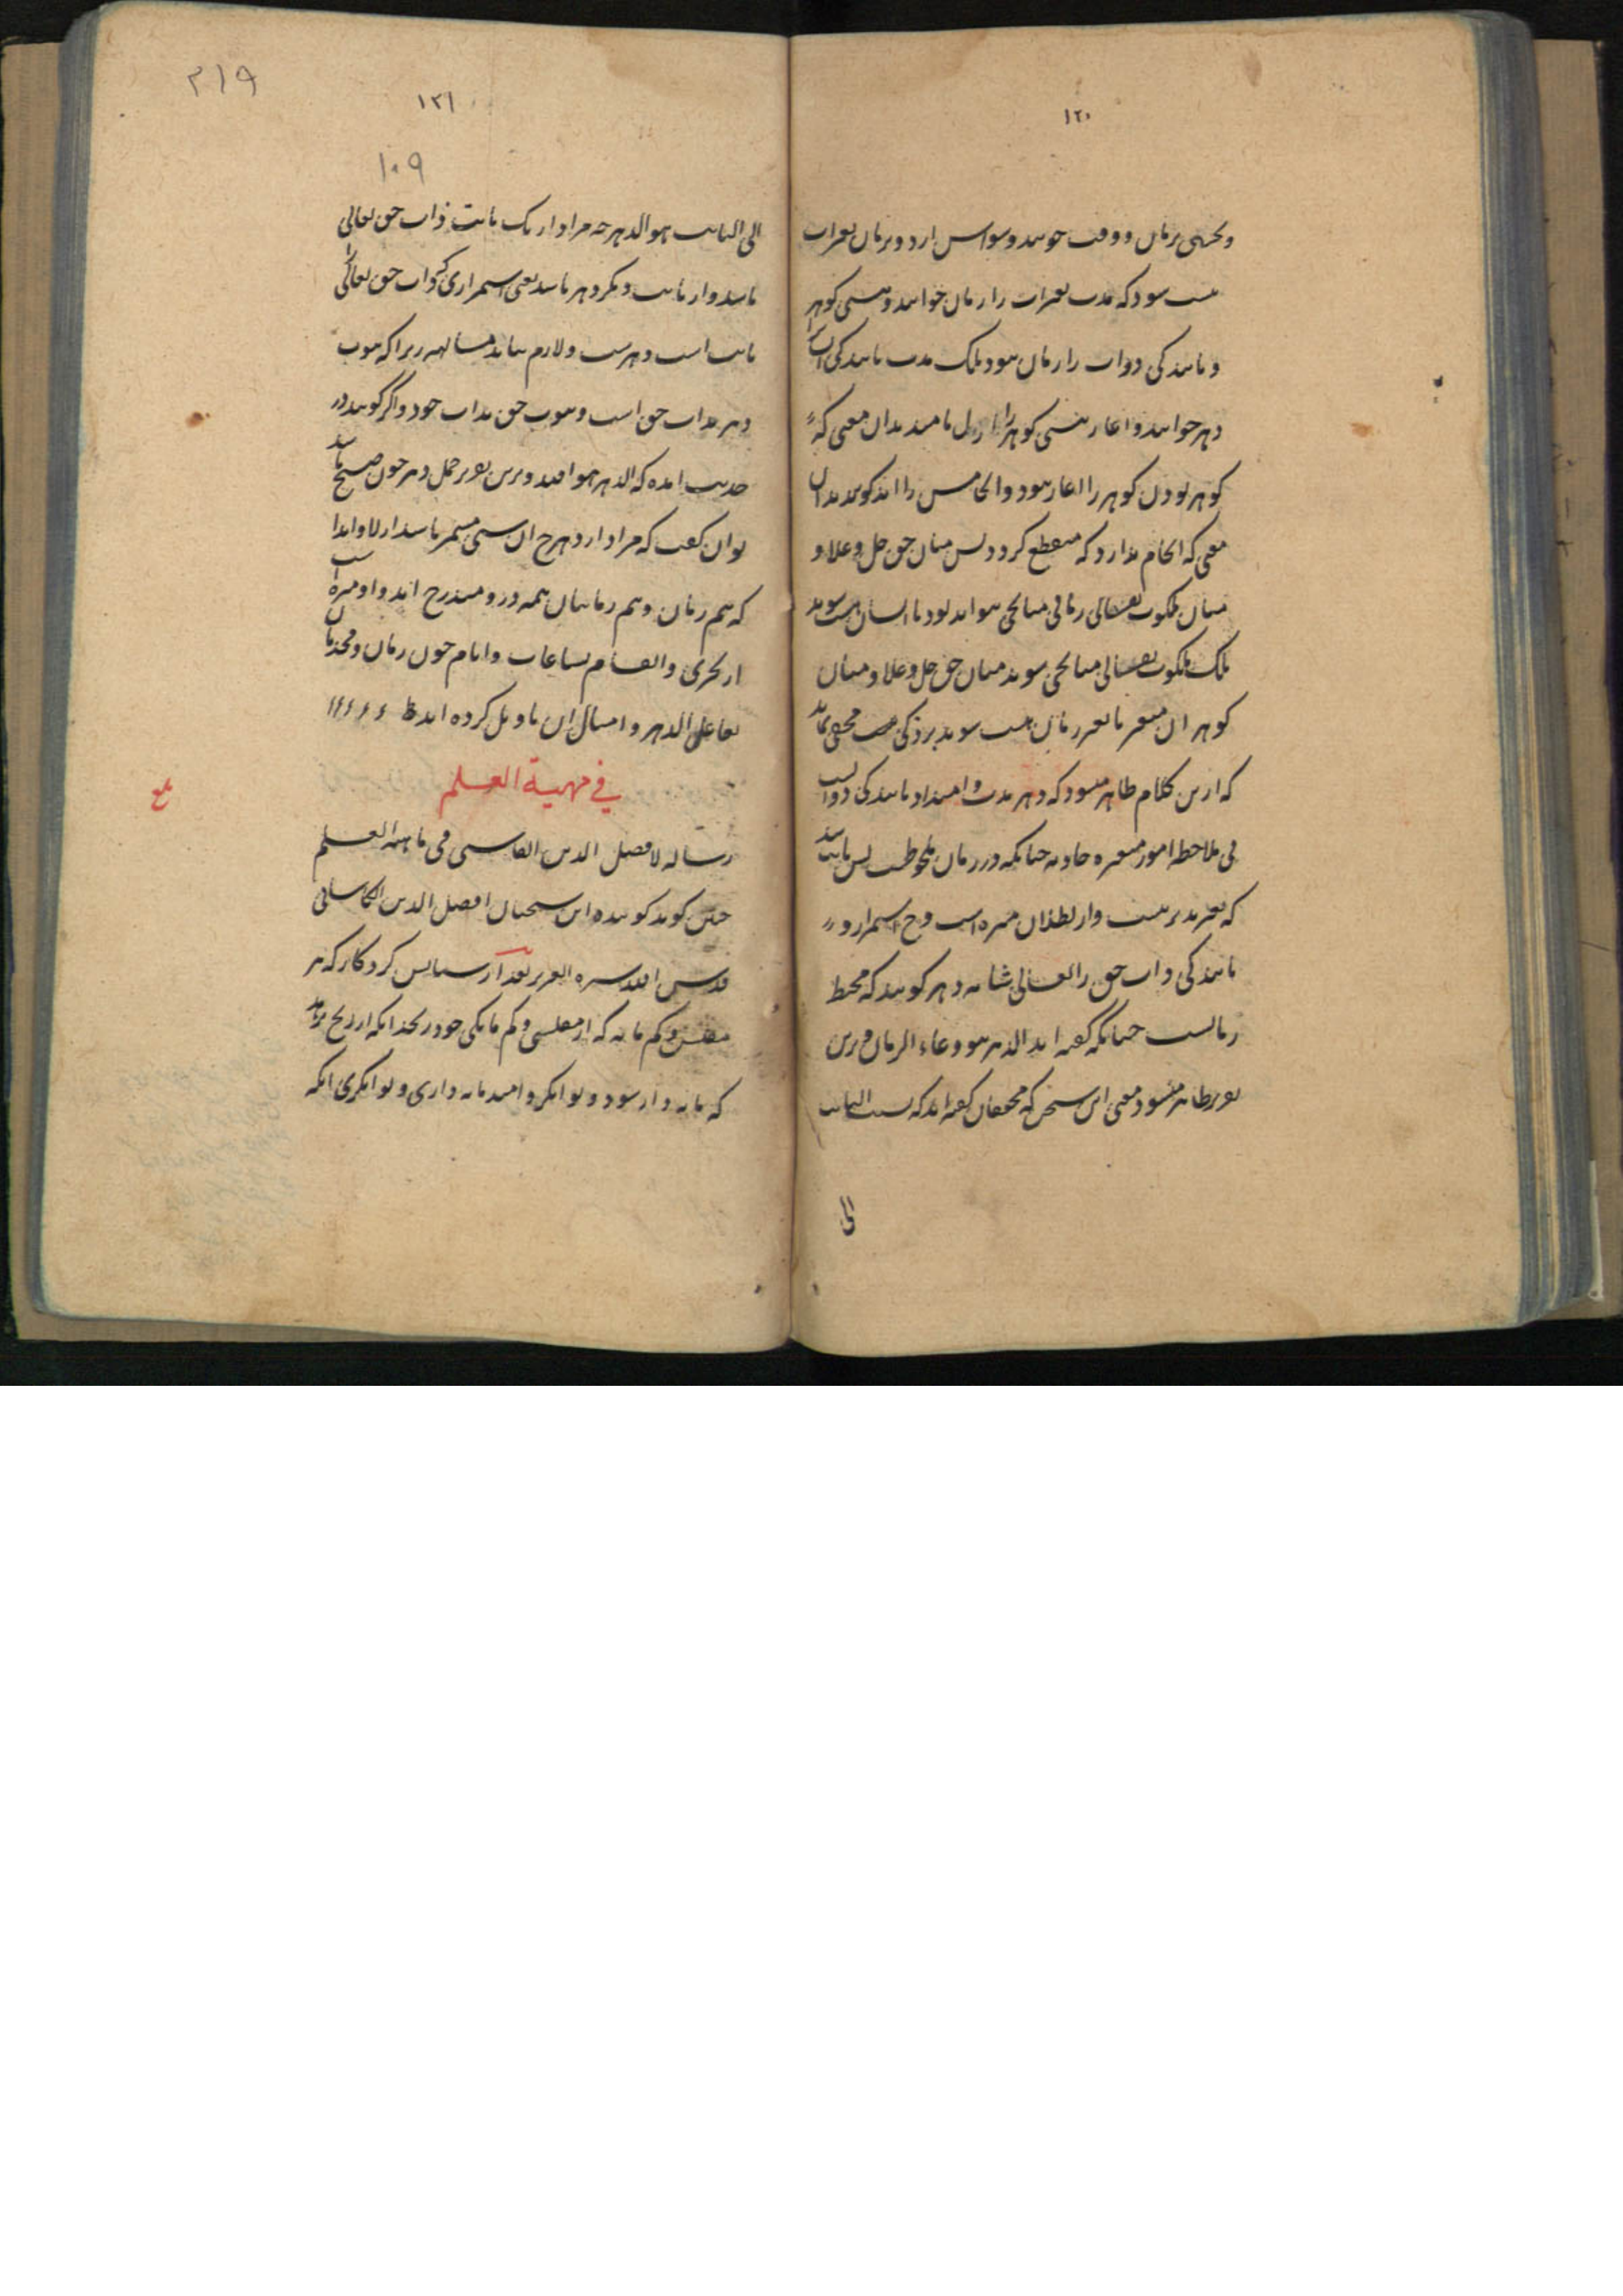 ۱۲۰
وکسی بزمان و وقت جویند و سواس ارد و بزمان تغیرات
مست شود که مدت تغیرات را زمان خوانند و هستی گوهر
و پایندگی ذوات را زمان نبود بلک مدت پایندگی
دهر خوانند و اغاز هستی گوهر را ازل نامند بدان معنی که
گوهر بودن گوهر را اغاز نبود و انجامش را ابد گویند بدان
معنی که انجام ندارد که منقطع گردد پس میان حق جل و علا و
میان ملکوت تعالی زمانی میانجی نتواند بود تا انسان هست شوند
بلک ملکوت تعالی میانجی شوند میان حق جل و علا و میان
گوهر ان متغیر تا تغیر زمان هست شوند
که ازین کلام ظاهر میشود که دهر مدت و امتداد پایندگی ذوات
بی ملاحظه امور متغیره حادثه چنانکه در زمان ملحوظست پس
که تغیر پذیر نیست و از بطلان مبره است و ح استمرار و
پایندگی ذات حق را تعالی شانه دهر گویند که محیط
زمانست چنانکه گفته اند الدهر هو وعاء الزمان و برین
تقریر ظاهر میشود معنی این سخن که محققان گفته اند که نسبت الثابت
الی
۱۲۱
۲۱۹
۱۰۹
الی الثابت هو الدهر چه مراد از یک ثابت ذات حق تعالی
باشد و از ثابت دیگر دهر باشد یعنی استمراری که ذات حق تعالی
ثابت است و دهرست و لازم نیاید مسالهه زیرا که ثبوت
دهر بذات حق است و ثبوت حق بذات خود و اگر گویند در
حدیث امده که الدهر هو الله و برین تقریر حمل دهر چون صحیح باشد
توان گفت که مراد از دهر ح ان هستی مستمر باشد ازلا و ابدا
که هم زمان و هم زمانیان همه درو مندرج اند و او مبره است
از تجزی و انقسام بساعات و ایام چون زمان و محدثان
بفاعل الدهر و امثال ان تاویل کرده اند
فی مهیة العلم
رساله لافضل الدین القاسی فی ماهیه العلم
چنین گوید گوینده این سخنان افضل الدین الکاسانی
قدس الله سره العزیز بعد از ستایش کردگار که هر
مفلس و کم مایه که از مفلسی و کم مایگی خود رنجد انکه از رنج برآید
که مایه دار شود و توانگر و امید مایه داری و توانگری انکه